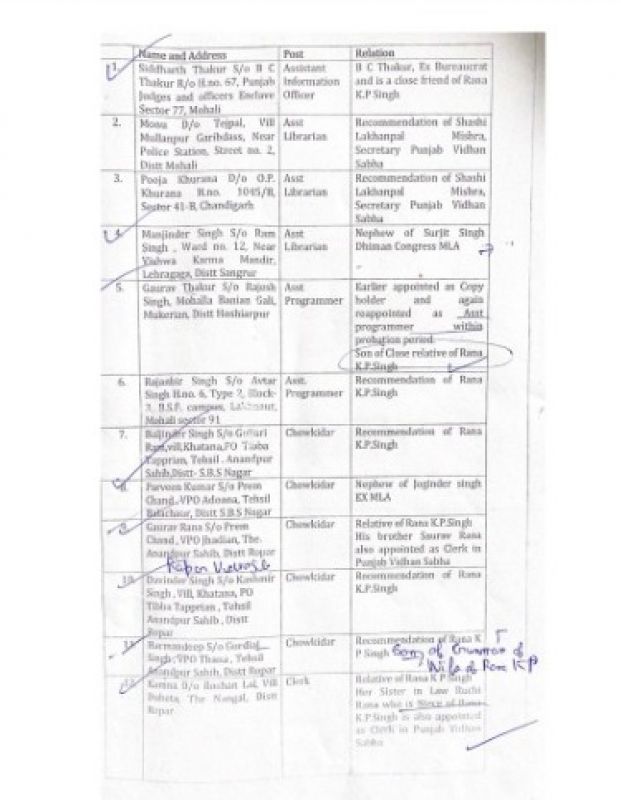 Name and Address Post Relation
1. Siddharth Thakur S/o B C Assistant B C Thakur, Ex Bureaucrat
Thakur R/o H.no. 67, Punjab Information and is a close friend of Rana
Judges and officers Enclave Officer K.P Singh
Sector 77, Mohali
2. Monu D/o Tejpal, Vill Asst Recommendation of Shashi
Mullanpur Garibdass, Near Librarian Lakhanpal Mishra,
Police Station, Street no. 2, Secretary Punjab Vidhan
Distt Mohali Sabha
3. Pooja Khurana D/o O.P. Asst Recommendation of Shashi
Khurana H.no. 1045/B, Librarian Lakhanpal Mishra,
Sector 41-B, Chandigarh Secretary Punjab Vidhan
Sabha
4. Manjinder Singh S/o Ram Asst Nephew of Surjit Singh
Singh , Ward no. 12, Near Librarian Dhiman Congress MLA
Vishwa Karma Mandir,
Lehragaga, Distt Sangrur
5. Gaurav Thakur S/o Rajesh Asst Earlier appointed as Copy
Singh, Mohalla Banian Gali, Programmer holder and again
Mukerian, Distt Hoshiarpur reappointed as Asst
programmer within
probation period.
Son of Close relative of Rana
K.P.Singh
6. Singh S/o Avtar Asst. Recommendation of Rana
Singh H.no. 6, Type 2, Block- Programmer K.P.Singh
B.S.F. campus,
Mohali sector 91
7. Baljinder Singh S/o Chowkidar Recommendation of Rana
Ram,vill,Khatana,PO Tibba K.P.Singh
Tapprian, Tehsil . Anandpur
Sahib,Distt- S.B.S Nagar
8. Parveen Kumar S/o Prem Chowkidar Nephew of Joginder singh
Chand , VPO Adoana, Tehsil EX MLA
Balachaur, Distt S.B.S Nagar
9. Gaurav Rana S/o Prem Chowkidar Relative of Rana K.P.Singh
Chand , VPO Jhadian, The. His brother Saurav Rana
Anandpur Sahib, Distt Ropar also appointed as Clerk in
Punjab Vidhan Sabha
10. Davinder Singh S/o Kashmir Chowkidar Recommendation of Rana
Singh , Vill, Khatana, PO K.P.Singh
Tibba Tapprian , Tehsil
Anandpur Sahib , Distt
Ropar
11. Harmandeep S/o Chowkidar Recommendation of Rana K
Singh , VPO Thana , Tehsil P Singh Son of Gunman of
Anandpur Sahib, Distt Ropar Wife of Rana KP
12. D/o Roshan Lal, Vill Clerk Relative of Rana K P Singh
The Nangal, Distt Her Sister in Law Ruchi
Ropar Rana who is Niece of Rana
K.P.Singh is also appointed
as Clerk in Punjab Vidhan
Sabha